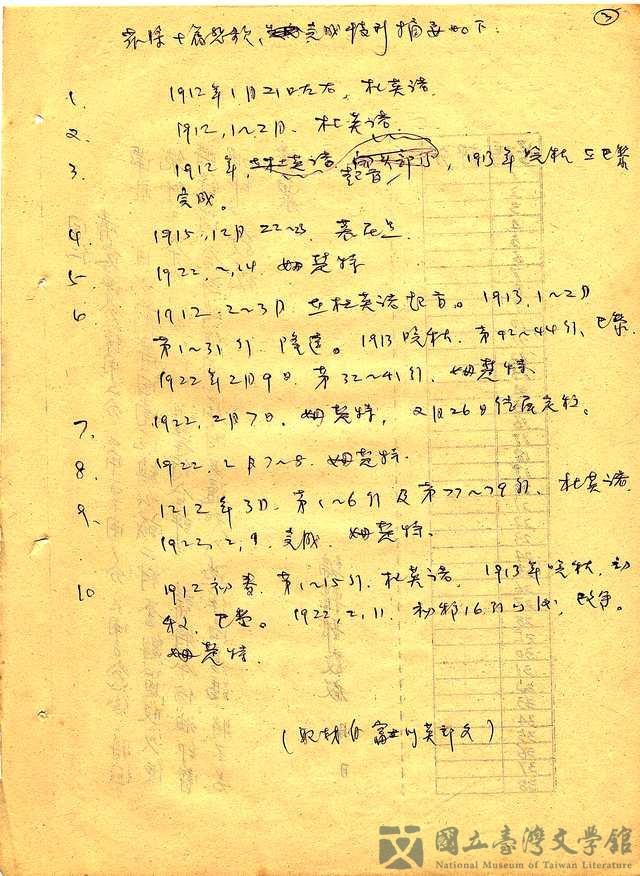 ③
十首悲歌、完成時刻摘要如下:
1. 1912年1月21日左右, 杜英諾.
2. 1912, 1~2月. 杜英諾.
3. 1912年, 杜英諾 起首, 1913年晚秋在巴黎
完成。
4 1915, 12月 22~23. 慕尼黑
5 1922. 2, 14. 姆楚特
6 1912. 2~3月 在杜英諾起首。1913. 1~2月
第1~31行. 隆達。1913 晚秋. 第42~44行、巴黎.
1922年2月9日. 第32~41行、姆楚特.
7. 1922, 2月7日. 姆楚特, 2月26日
8. 1922. 2月7~8. 姆楚特.
9. 1212年3月. 第1~6行及第77~79行、杜英諾.
1922, 2, 9. 完成. 姆楚特.
10 1912初春. 第1~15行. 杜英諾. 1913年晚秋. 初
稿. 巴黎。 1922, 2, 11. 初稿16行以後,
姆楚特.
(取材自富士川英郎文)
國立臺灣文學館
National Museum of Taiwan Literature